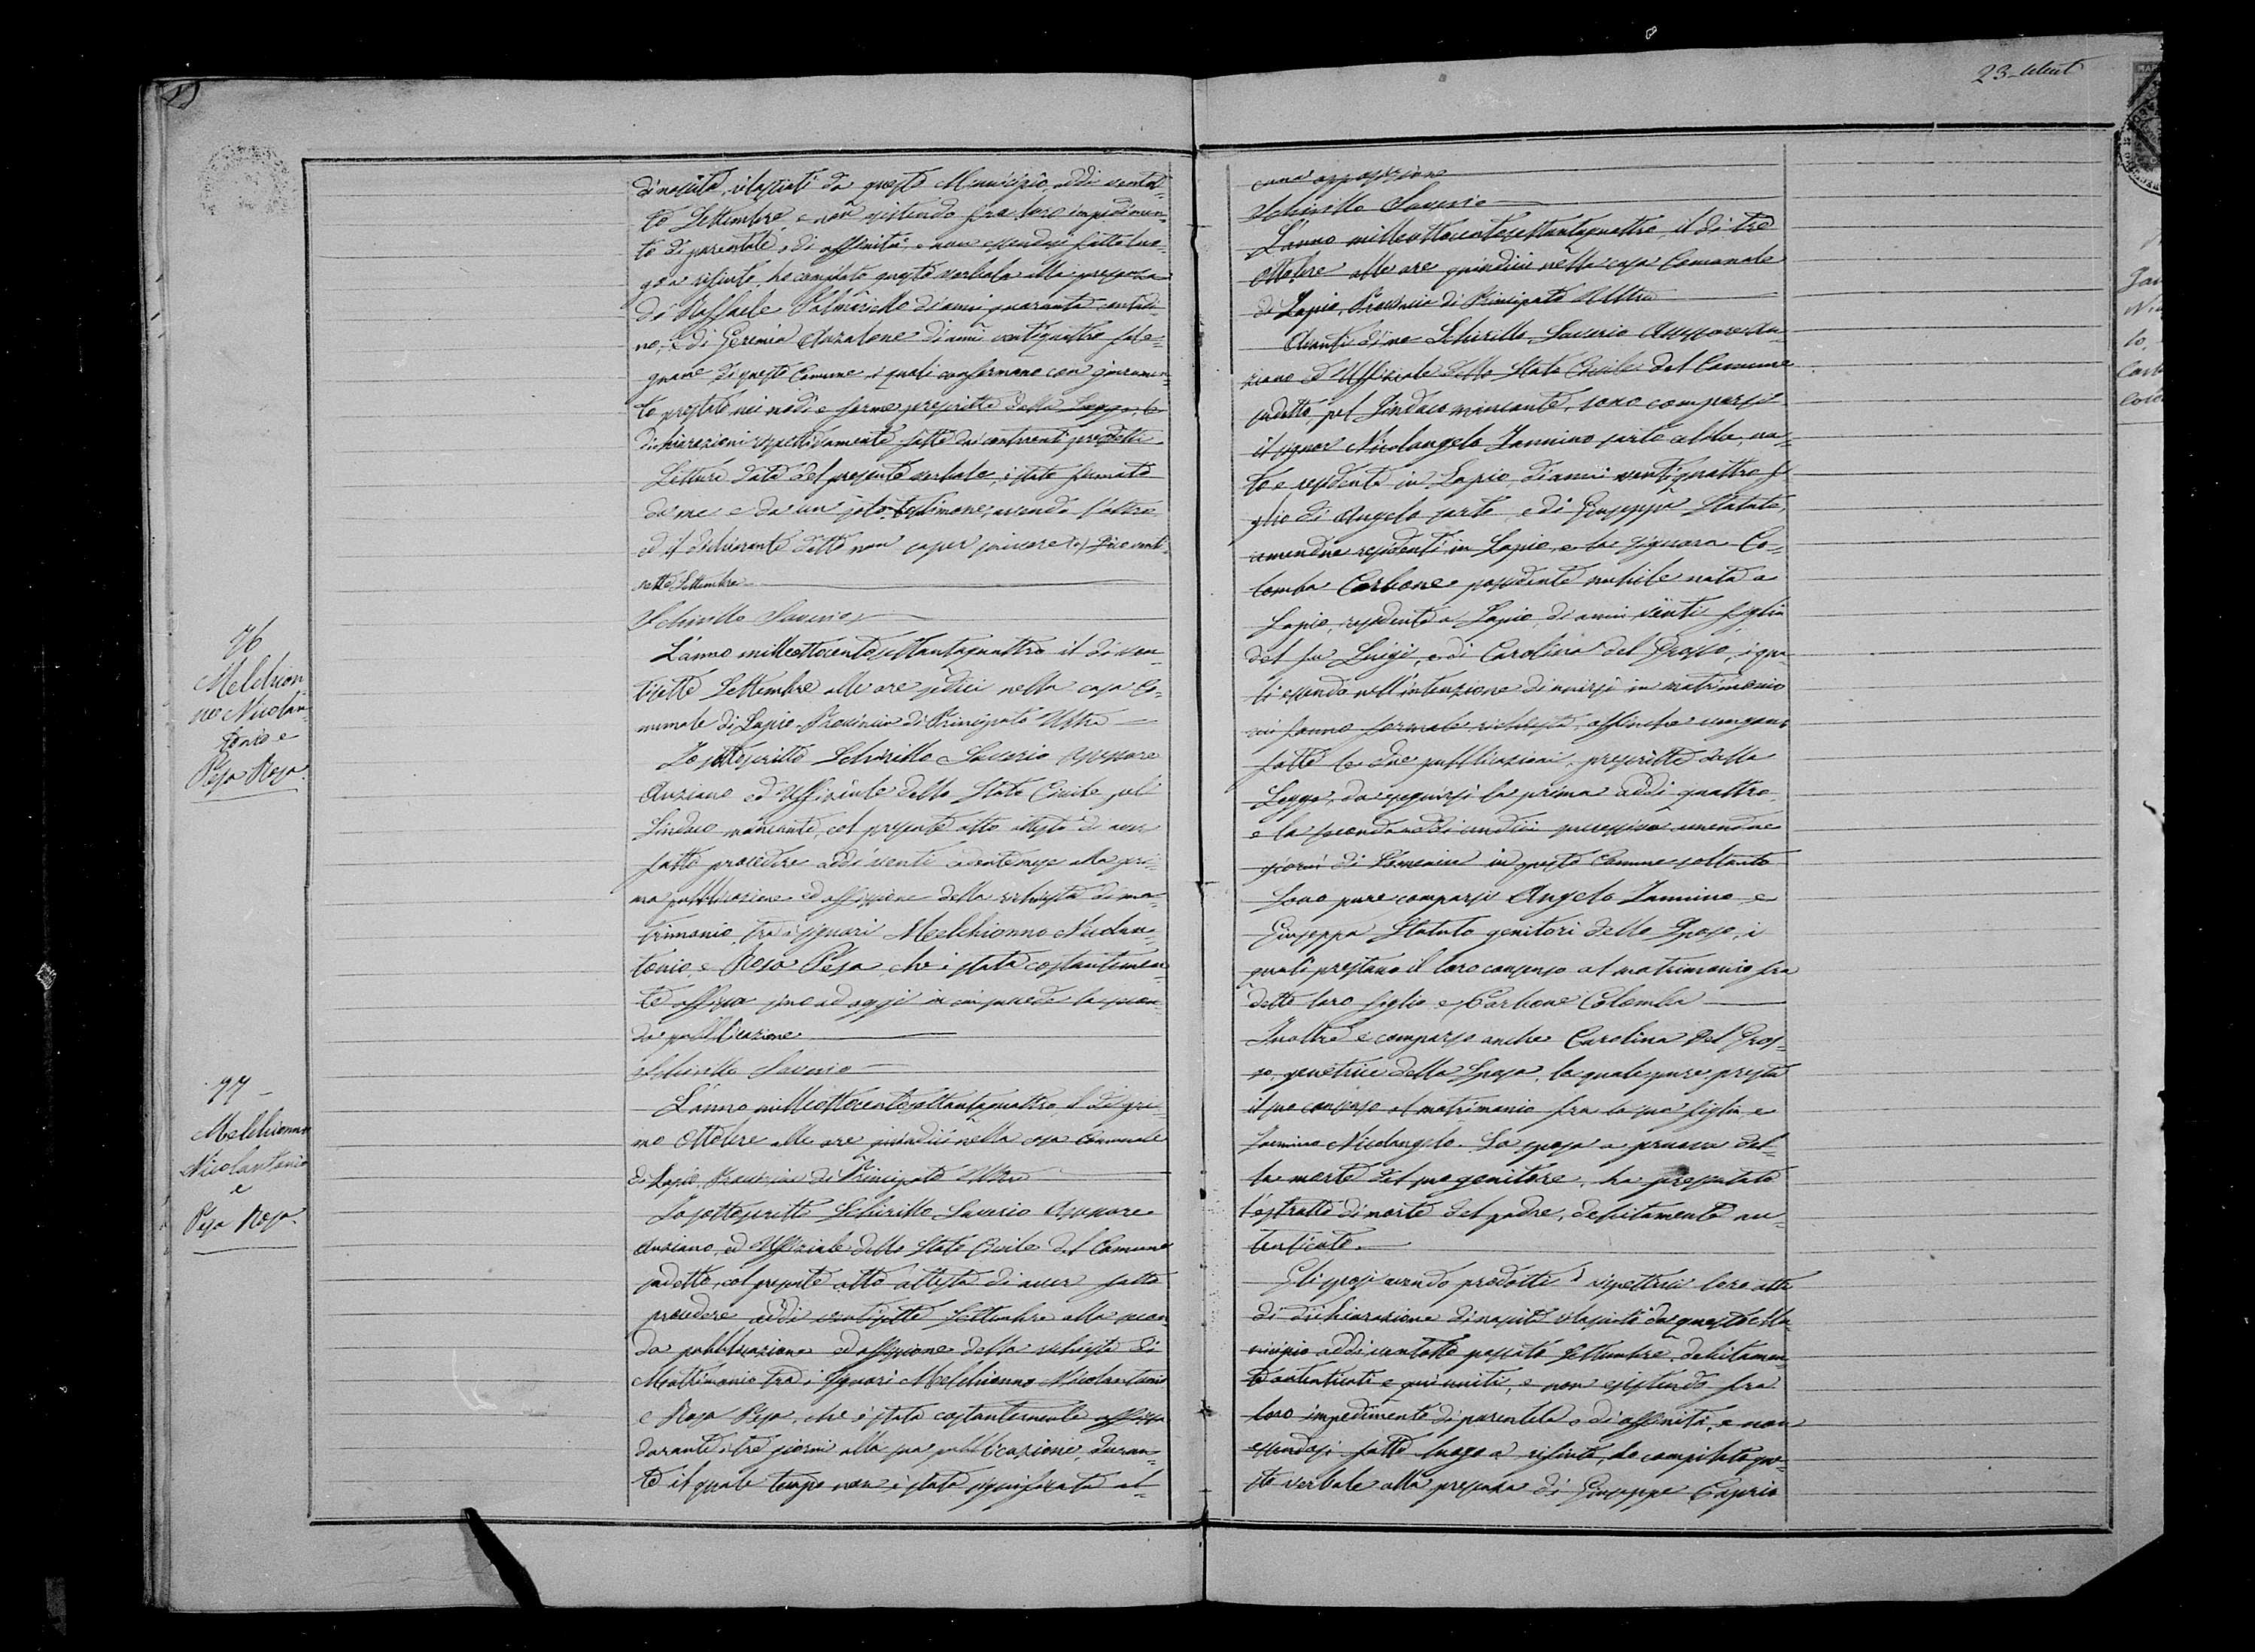 di nascita, rilasciati da questo Municipio, addì ventot-
to Settembre, e non esistendo fra loro impedimen-
to di parentela, o di affinità, e non essendosi fatto luo-
go a rifiuto, ho compilato questo verbale alla presenza
di Raffaele Palmariello di anni quaranta, contadi-
no, e di Geremia Anzalone di anni ventiquattro fale-
gname di questo Comune, i quali confermano con giuramen-
to prestato nei modi e forme prescritte dalla Legge, le
dichiarazioni rispettivamente fatte dai contraenti predetti
Lettura data del presente verbale, è stato firmato
da me e da un solo testimone, avendo l'altro
ed il dichiarante detto non saper scrivere Dico venti-
sette Settembre
Schirillo Saverio
96
Melchion
no Nicolan-
tonio e
Pesa Rosa.
L'anno milleottocentosettantaquattro il dì ven-
tisette Settembre alle ore sedici nella casa Co-
munale di Lapio, Provincia di Principato Ultra
Io sottoscritto Schirillo Saverio Assessore
Anziano ed Uffiziale dello Stato Civile pel
Sindaco mancante, col presente atto attesto di aver
fatto procedere addì venti andante mese alla pri-
ma pubblicazione ed affissione della richiesta di ma-
trimonio tra i signori Melchionno Nicolan-
tonio, e Rosa Pesa, che è stata costantemen-
te affissa sino ad oggi in cui succede la secon-
da pubblicazione
Schirillo Saverio
97
Melchionno
Nicolantonio
e
Pesa Rosa.
L'anno milleottocentosettantaquattro, il dì pri-
mo Ottobre alle ore quindici nella casa Comunale
di Lapio, Provincia di Principato Ultra
Io sottoscritto Schirillo Saverio Assessore
Anziano, ed Uffiziale dello Stato Civile del Comune
sudetto, col presente atto attesto di aver fatto
procedere addì ventisette Settembre alla secon-
da pubblicazione ed affissione della richiesta di
Matrimonio tra i Signori Melchionno Nicolantonio
e Rosa Pesa, che è stata costantemente affissa
durante i tre giorni alla sua pubblicazione, duran-
te il quale tempo non è stata significata al-
23
cuna opposizione
Schirillo Saverio
L'anno milleottocentosettantaquattro, il dì tre
Ottobre alle ore quindici nella casa Comunale
di Lapio, Provincia di Principato Ultra
Avanti di me Schirillo Saverio Assessore An-
ziano ed Uffiziale dello Stato Civile del Comune
sudetto, pel Sindaco mancante, sono comparsi
il signor Nicolangelo Iannino sarto celibe, na-
to e residente in Lapio, di anni ventiquattro fi-
glio di Angelo sarto, e di Giuseppa Statuto,
amendue residenti in Lapio, e la signora Co-
lomba Carbone possidente nubile nata a
Lapio, residente a Lapio, di anni venti figlia
del fu Luigi, e di Carolina del Grosso, i qua-
li essendo nell'intenzione di unirsi in matrimonio
mi fanno formale richiesta, affinchè vengano
fatte le due pubblicazioni, prescritte dalla
Legge, da eseguirsi la prima addì quattro,
e la seconda addì undici successivo amendue
giorni di Domenica in questo Comune soltanto
Sono pure comparsi Angelo Iannino, e
Giuseppa Statuto genitori dello Sposo, i
quali prestano il loro consenso al matrimonio fra
detto loro figlio e Carbone Colomba
Inoltre è comparso anche Carolina Del Gros-
so, genitrice della Sposa, la quale pure presta
il suo consenso al matrimonio fra la sua figlia e
Iannino Nicolangelo. La sposa a pruova del-
la morte del suo genitore, ha presentato
l'estratto di morte del padre, debitamente au-
tenticato.
Gli sposi avendo prodotti i rispettivi loro atti
di dichiarazione di nascita rilasciati da questo Mu-
nicipio addì ventotto passato Settembre, debitamen-
te autenticati e qui uniti, e non esistendo fra
loro impedimento di parentela o di affinità, e non
essendosi fatto luogo a rifiuto, ho compilato que-
sto verbale alla presenza di Giuseppe Caprio